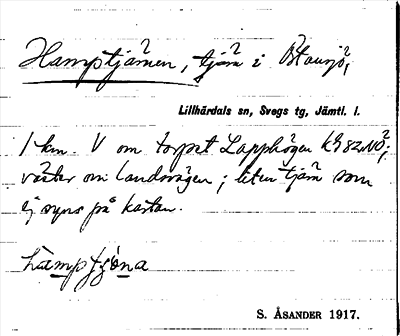 Hamptjärnen, tjärn i Blåsjö,
Lillhärdals sn, Svegs tg, Jämtl. l.
1 km. V om torpet Lapphögen
väster om landsvägen; liten tjärn som
ej syns på kartan.
S. ÅSANDER 1917.